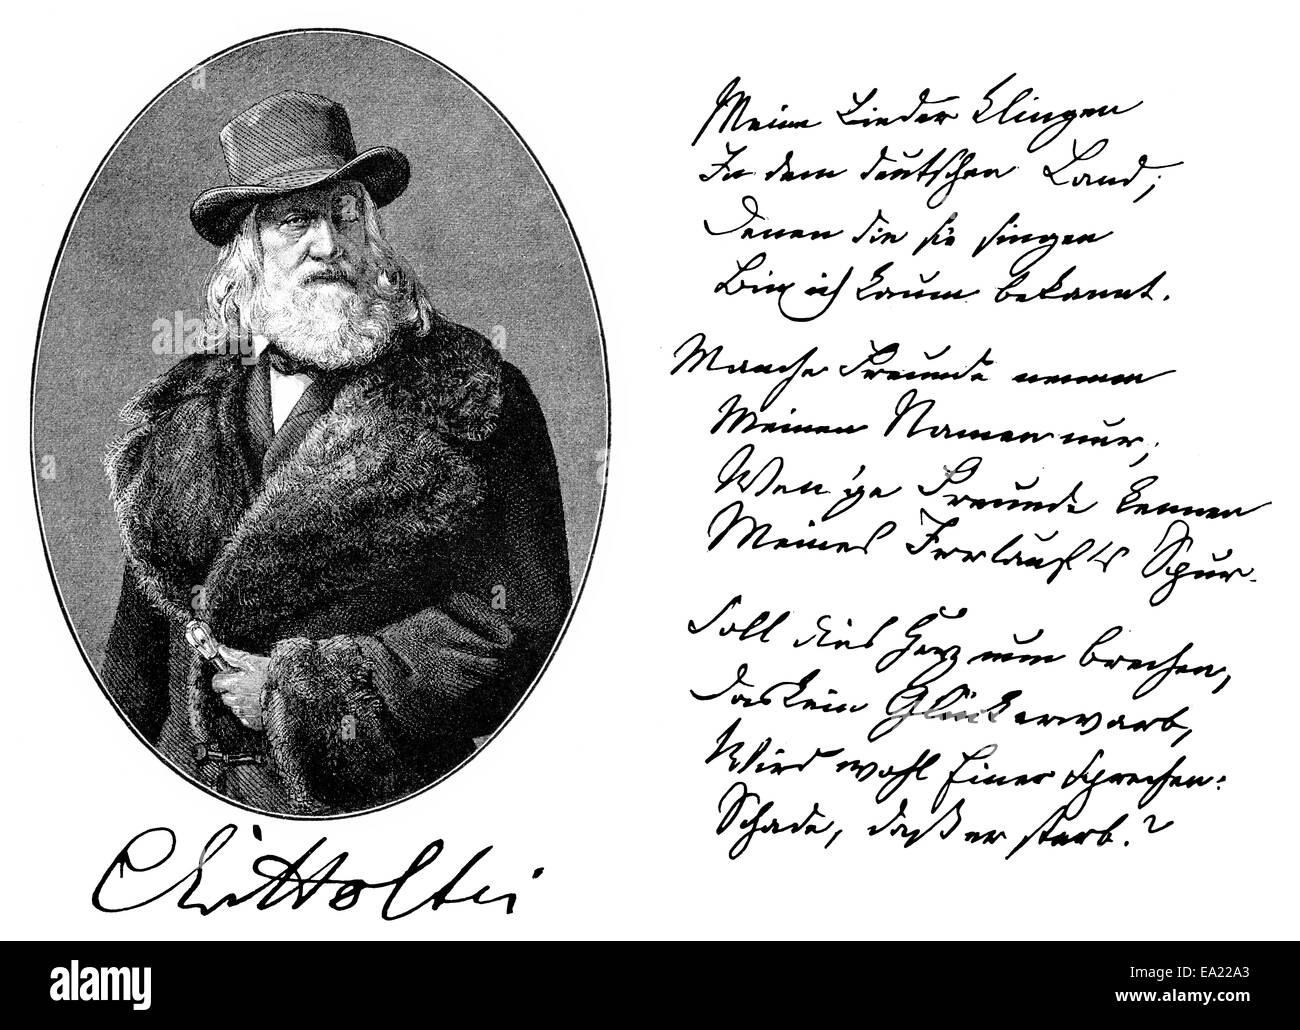 Meine Lieder klingen
In dem deutschen Land;
Denen die sie singen
Bin ich kaum bekannt.
Manche Freunde nennen
Meinen Namen nur;
Wen'ge Freunde kennen
Meines Erdlaufs Spur.
Soll dies Herz nun brechen,
Das kein Glück erwarb,
Wird wohl Einer sprechen:
Schade, daß er starb.?
CvHoltei
alamy
alamy
www.alamy.com - EA22A3